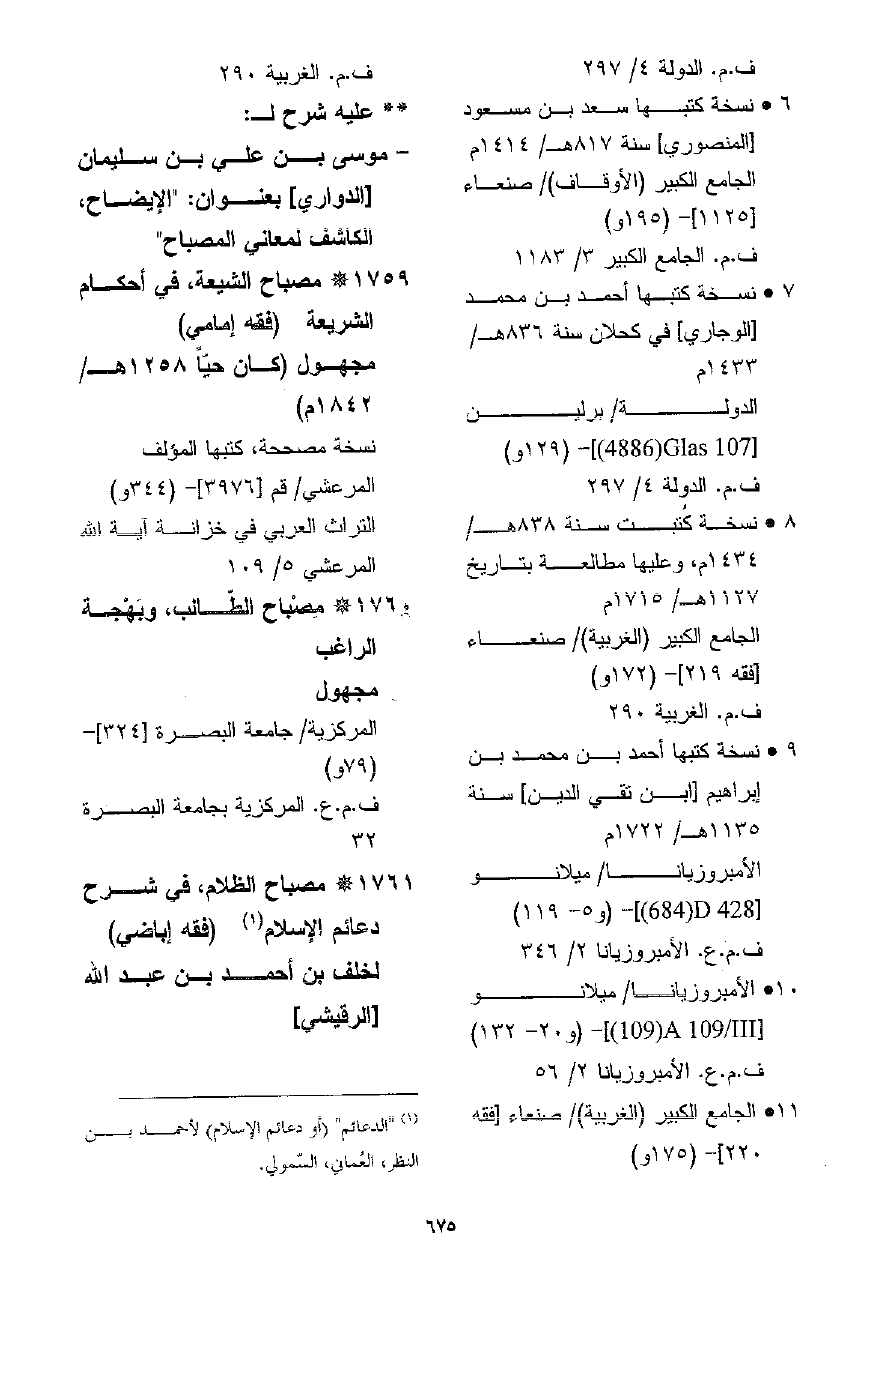 ف.م. الدولة ٤/ ٢٩٧
٦ • نسخة كتبها سعد بن مسعود
[المنصوري] سنة ٨١٧هـ/ ١٤١٤م
الجامع الكبير (الأوقاف)/ صنعاء
[١١٢٥]- (١٩٥و)
ف.م. الجامع الكبير ٣/ ١١٨٣
٧ • نسخة كتبها أحمد بن محمد
[الوجاري] في كحلان سنة ٨٣٦هـ/
١٤٣٣م
الدولة/ برلين
[4886)Glas 107)]- (١٢٩و)
ف.م. الدولة ٤/ ٢٩٧
٨ • نسخة كُتبت سنة ٨٣٨هـ/
١٤٣٤م، وعليها مطالعة بتاريخ
١١٢٧هـ/ ١٧١٥م
الجامع الكبير (الغربية)/ صنعاء
[فقه ٢١٩]- (١٧٢و)
ف.م. الغربية ٢٩٠
٩ • نسخة كتبها أحمد بن محمد بن
إبراهيم [ابن تقي الدين] سنة
١١٣٥هـ/ ١٧٢٢م
الأمبروزيانا/ ميلانو
[684)D 428)]- (و٥- ١١٩)
ف.م.ع. الأمبروزيانا ٢/ ٣٤٦
١٠• الأمبروزيانا/ ميلانو
[109)A 109/III)]- (و٢٠- ١٣٢)
ف.م.ع. الأمبروزيانا ٢/ ٥٦
١١• الجامع الكبير (الغربية)/ صنعاء [فقه
٢٢٠]- (١٧٥و)
ف.م. الغربية ٢٩٠
** عليه شرح لـ:
- موسى بن علي بن سليمان
[الدواري] بعنوان: "الإيضاح،
الكاشف لمعاني المصباح"
١٧٥٩* مصباح الشيعة، في أحكام
الشريعة (فقه إمامي)
مجهول (كان حيّاً ١٢٥٨هـ/
١٨٤٢م)
نسخة مصححة، كتبها المؤلف
المرعشي/ قم [٣٩٧٦]- (٣٤٤و)
التراث العربي في خزانة آية الله
المرعشي ٥/ ١٠٩
١٧٦٠* مِصْباح الطّالب، وبَهْجة
الراغب
مجهول
المركزية/ جامعة البصرة [٣٢٤]-
(٧٩و)
ف.م.ع. المركزية بجامعة البصرة
٣٢
١٧٦١* مصباح الظلام، في شرح
دعائم الإسلام(١) (فقه إباضي)
لخلف بن أحمد بن عبد الله
[الرقيشي]
(١) "الدعائم" (أو دعائم الإسلام) لأحمد بن
النظر، العُماني، السّمولي.
٦٧٥